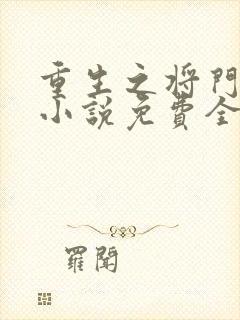 重生之将門
小說免費全
羅聞